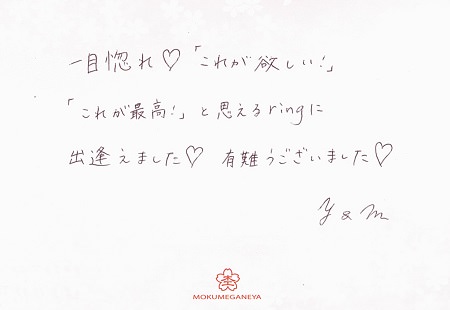 一目惚れ♡「これが欲しい!」
「これが最高!」と思えるringに
出逢えました♡ 有難うございました♡
y & m
MOKUMEGANEYA